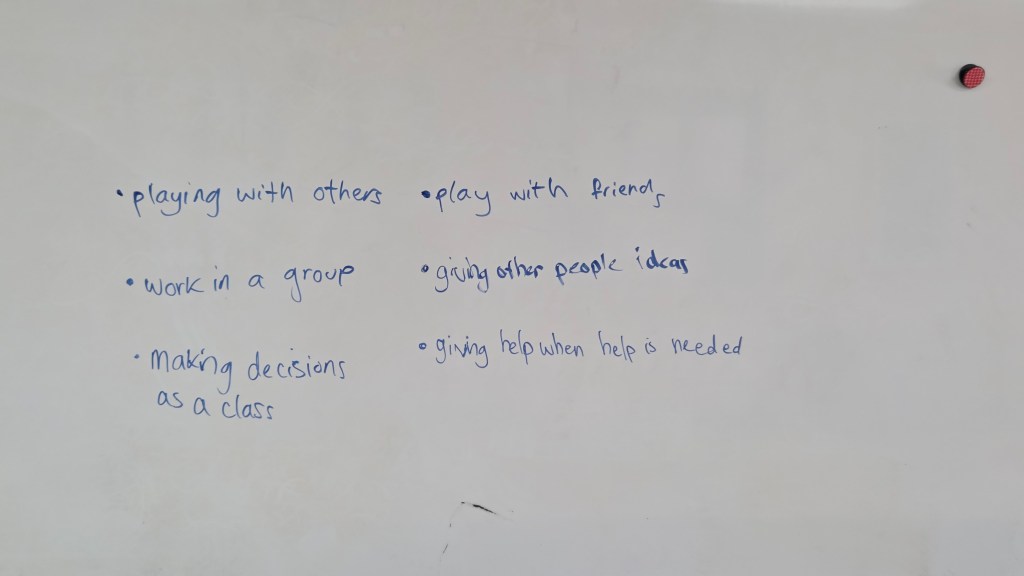 • playing with others
• work in a group
• Making decisions
as a class
• play with friends
• giving other people ideas
• giving help when help is needed